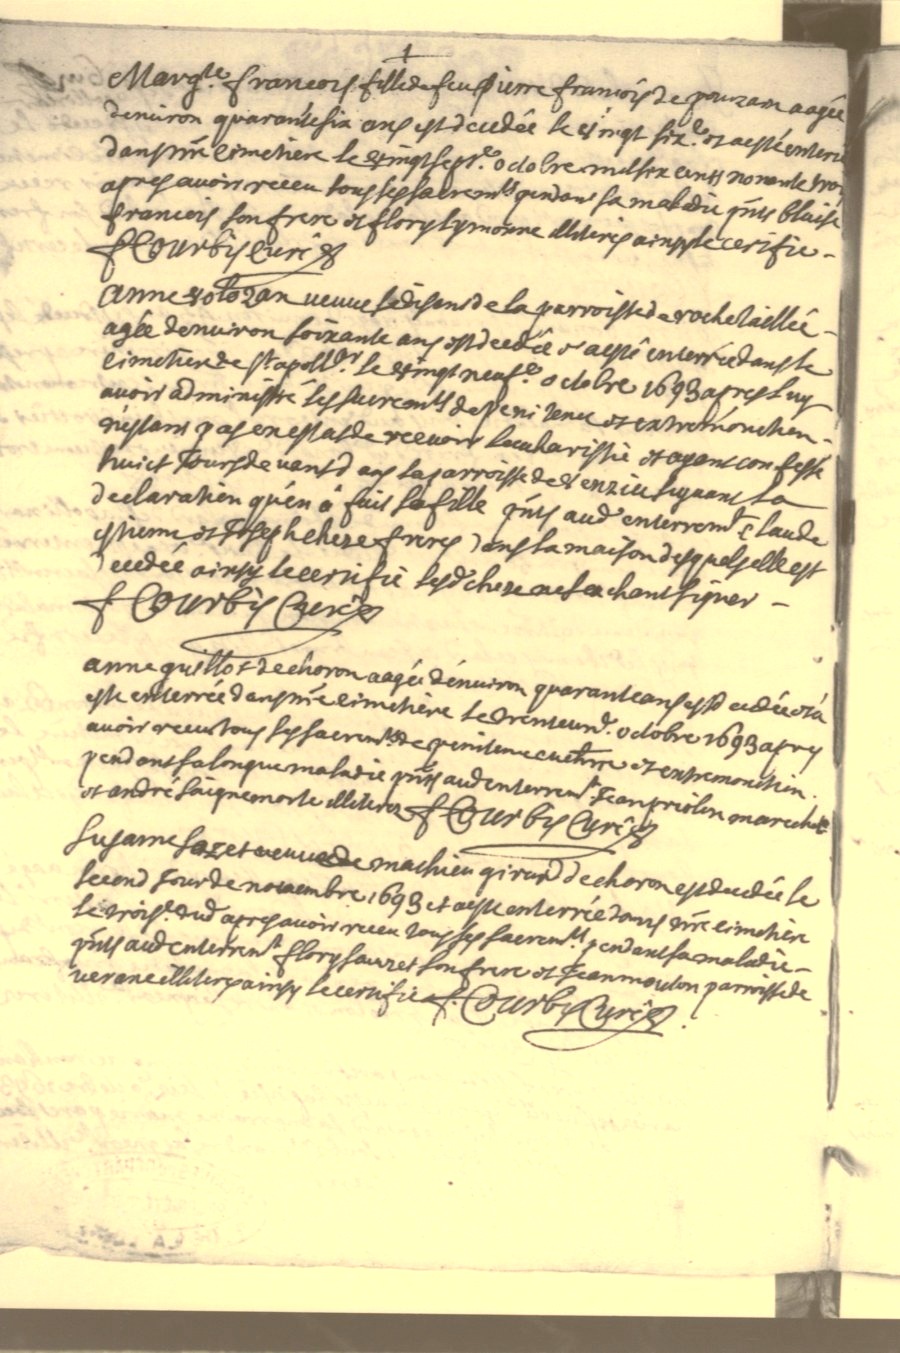 Margte. francois fille de feu pierre francois de pouzan aagée
denuiron quarante six ans est decedée le vingt sixe. et a esté enterré
dans nre cimetiere le vingt septe. octobre mil six cents nonante trois
apres avoir receu tous les sacremts pendant sa maladie pnts blaise
francois son frere et flory lymonne illiteres ainsy le certifie –
f Courbis Curé
Anne volozan veuve de la parroisse de rochetaillée –
agée denuiron soixante ans est decedée & a esté enterrée dans le
cimetiere de st apollre. le vingt neufe. octobre 1693 apres luy
avoir administré les sacremts de penitence et extremonction –
n'estant pas en estat de recevoir leucharistie et ayant confessé
huict Jours devant dans la parroisse de suyuant la
declaration qu'en a fait sa fille pnts aud enterremt Claude
estienne et Joseph cheze freres dans la maison desquels elle est
decedée ainsy le certifie lesd cheze ne sachant signer –
f Courbis Curé
anne guillot de choron aagée denuiron quarante ans est decedée et a
esté enterrée dans nre cimetiere le trente un octobre 1693 apres
avoir receu tous les sacremts de penitence et extremonction
pendant sa longue maladie pnts aud enterremt Jean priolin marechal
et andré saignemorte illiteres f Courbis Curé
Susanne sozet veuve de mathieu girard de choron est decedée le
second Jour de novembre 1693 et a esté enterrée dans nre cimetiere
le troise. dud apres avoir receu tous ses sacremts pendant sa maladie –
pnts aud enterremt flory sauzet son frere et Jean mouton parroisse de
verane illiteres ainsy le certifie f. Courbis Curé.